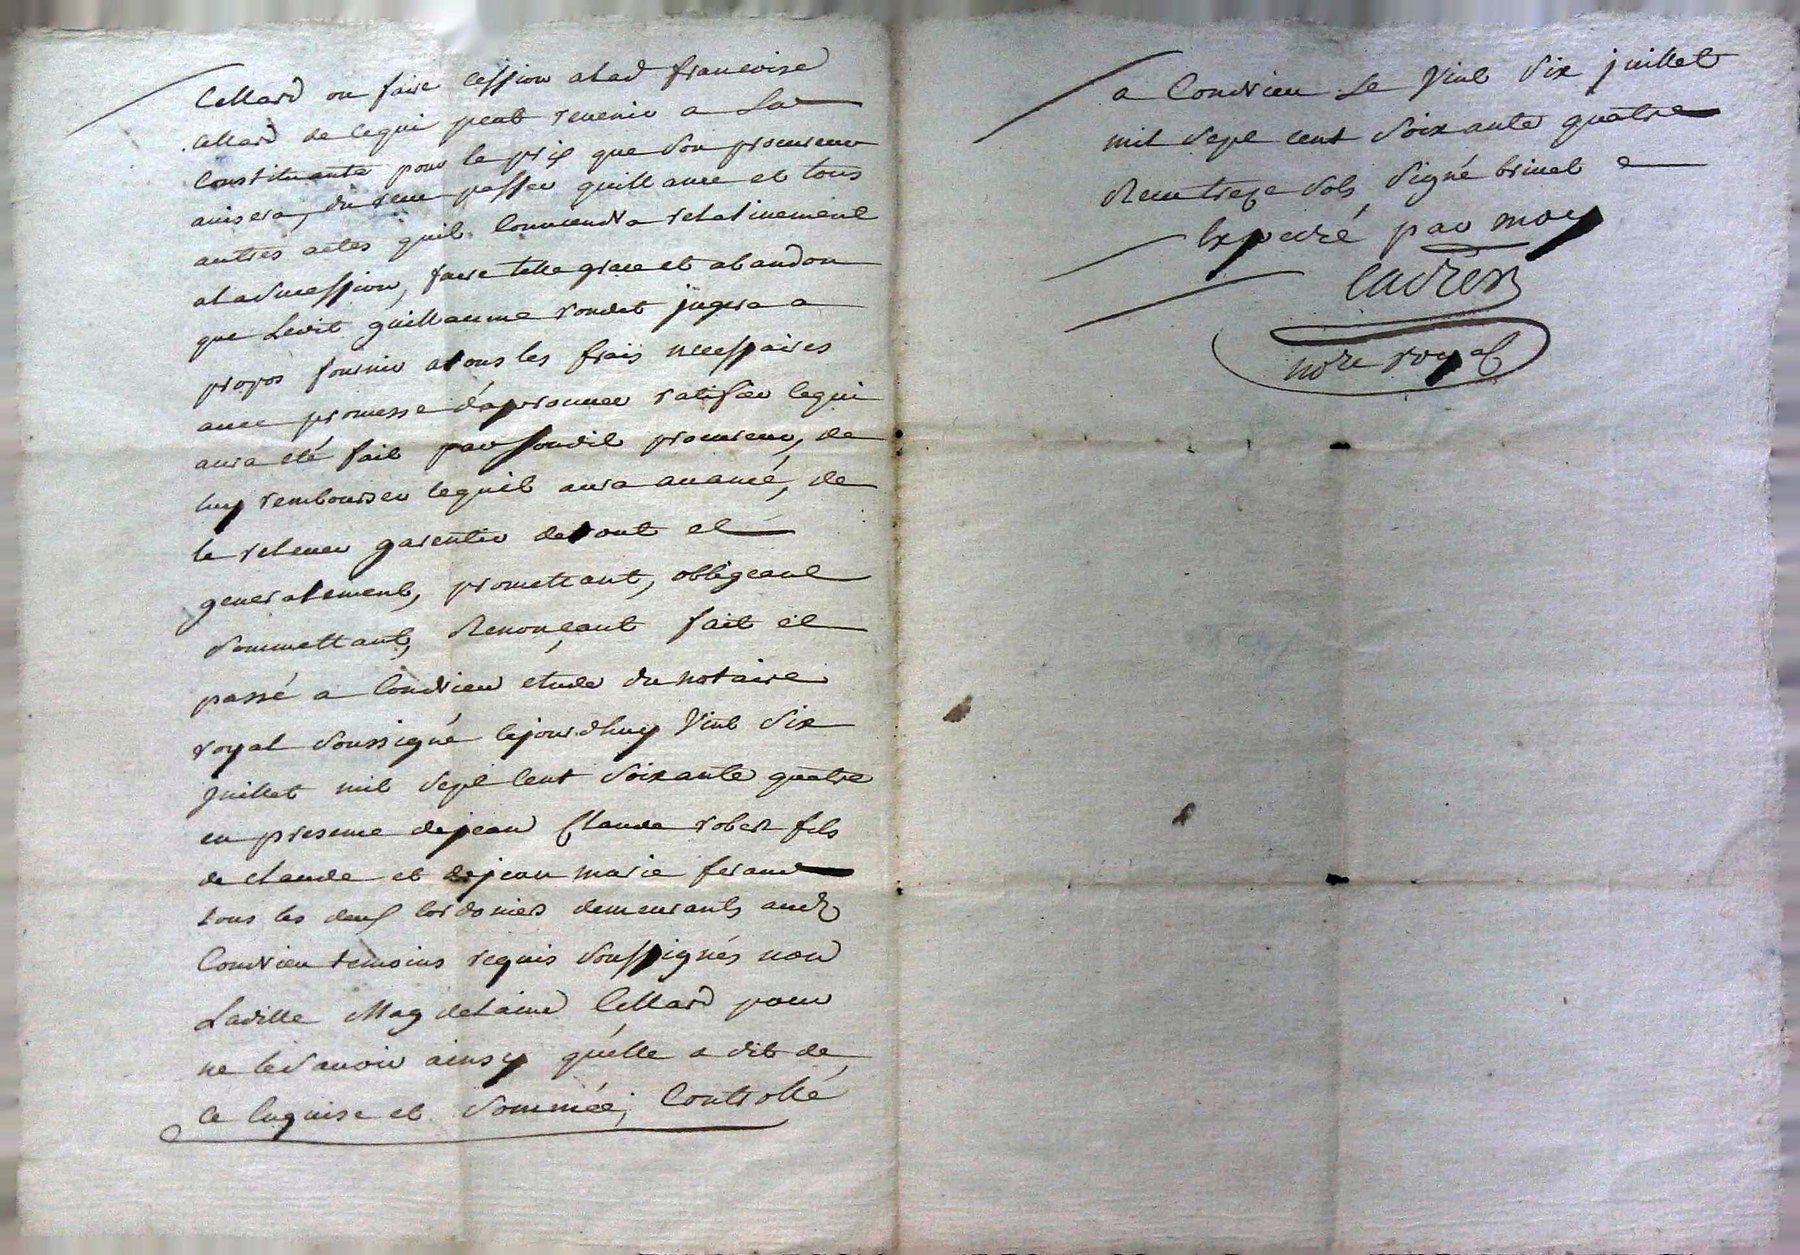 Cellard ou faire cession alad francoise
Cellard de cequi peut revenir a La
Constituante pour le prix que son procureur
avisera, du reçu passer quittance et tous
autres actes quil conviendra relativement
aladsuccession, faire telle grace et abandon
que Ledit guillaume rondet jugera a
propos fournir atous les frais necessaires
avec promesse d'aprouver ratifier cequi
aura eté fait par sondit procureur, de
luy rembourser cequil aura avancé, de
le relever garentir detout et
generalement, promettant, obligeant
soumettant, Renonçant fait et
passé a Condrieu etude du notaire
royal soussigné cejourdhuy Vint six
juillet mil sept cent soixante quatre
en presence dejean Claude robert fils
de claude et dejean marie ferand
tous les deux cordoniers demeurants aud
Condrieu temoins requis soussignés non
Laditte Magdelaine Cellard pour
ne lesavoir ainsy qu'elle a dit de
ce enquise et sommée; Controllé
a Condrieu Le Vint six juillet
mil sept cent soixante quatre
Reçu treze sols signé brinet
Expedié par moy
cadres
nore royal